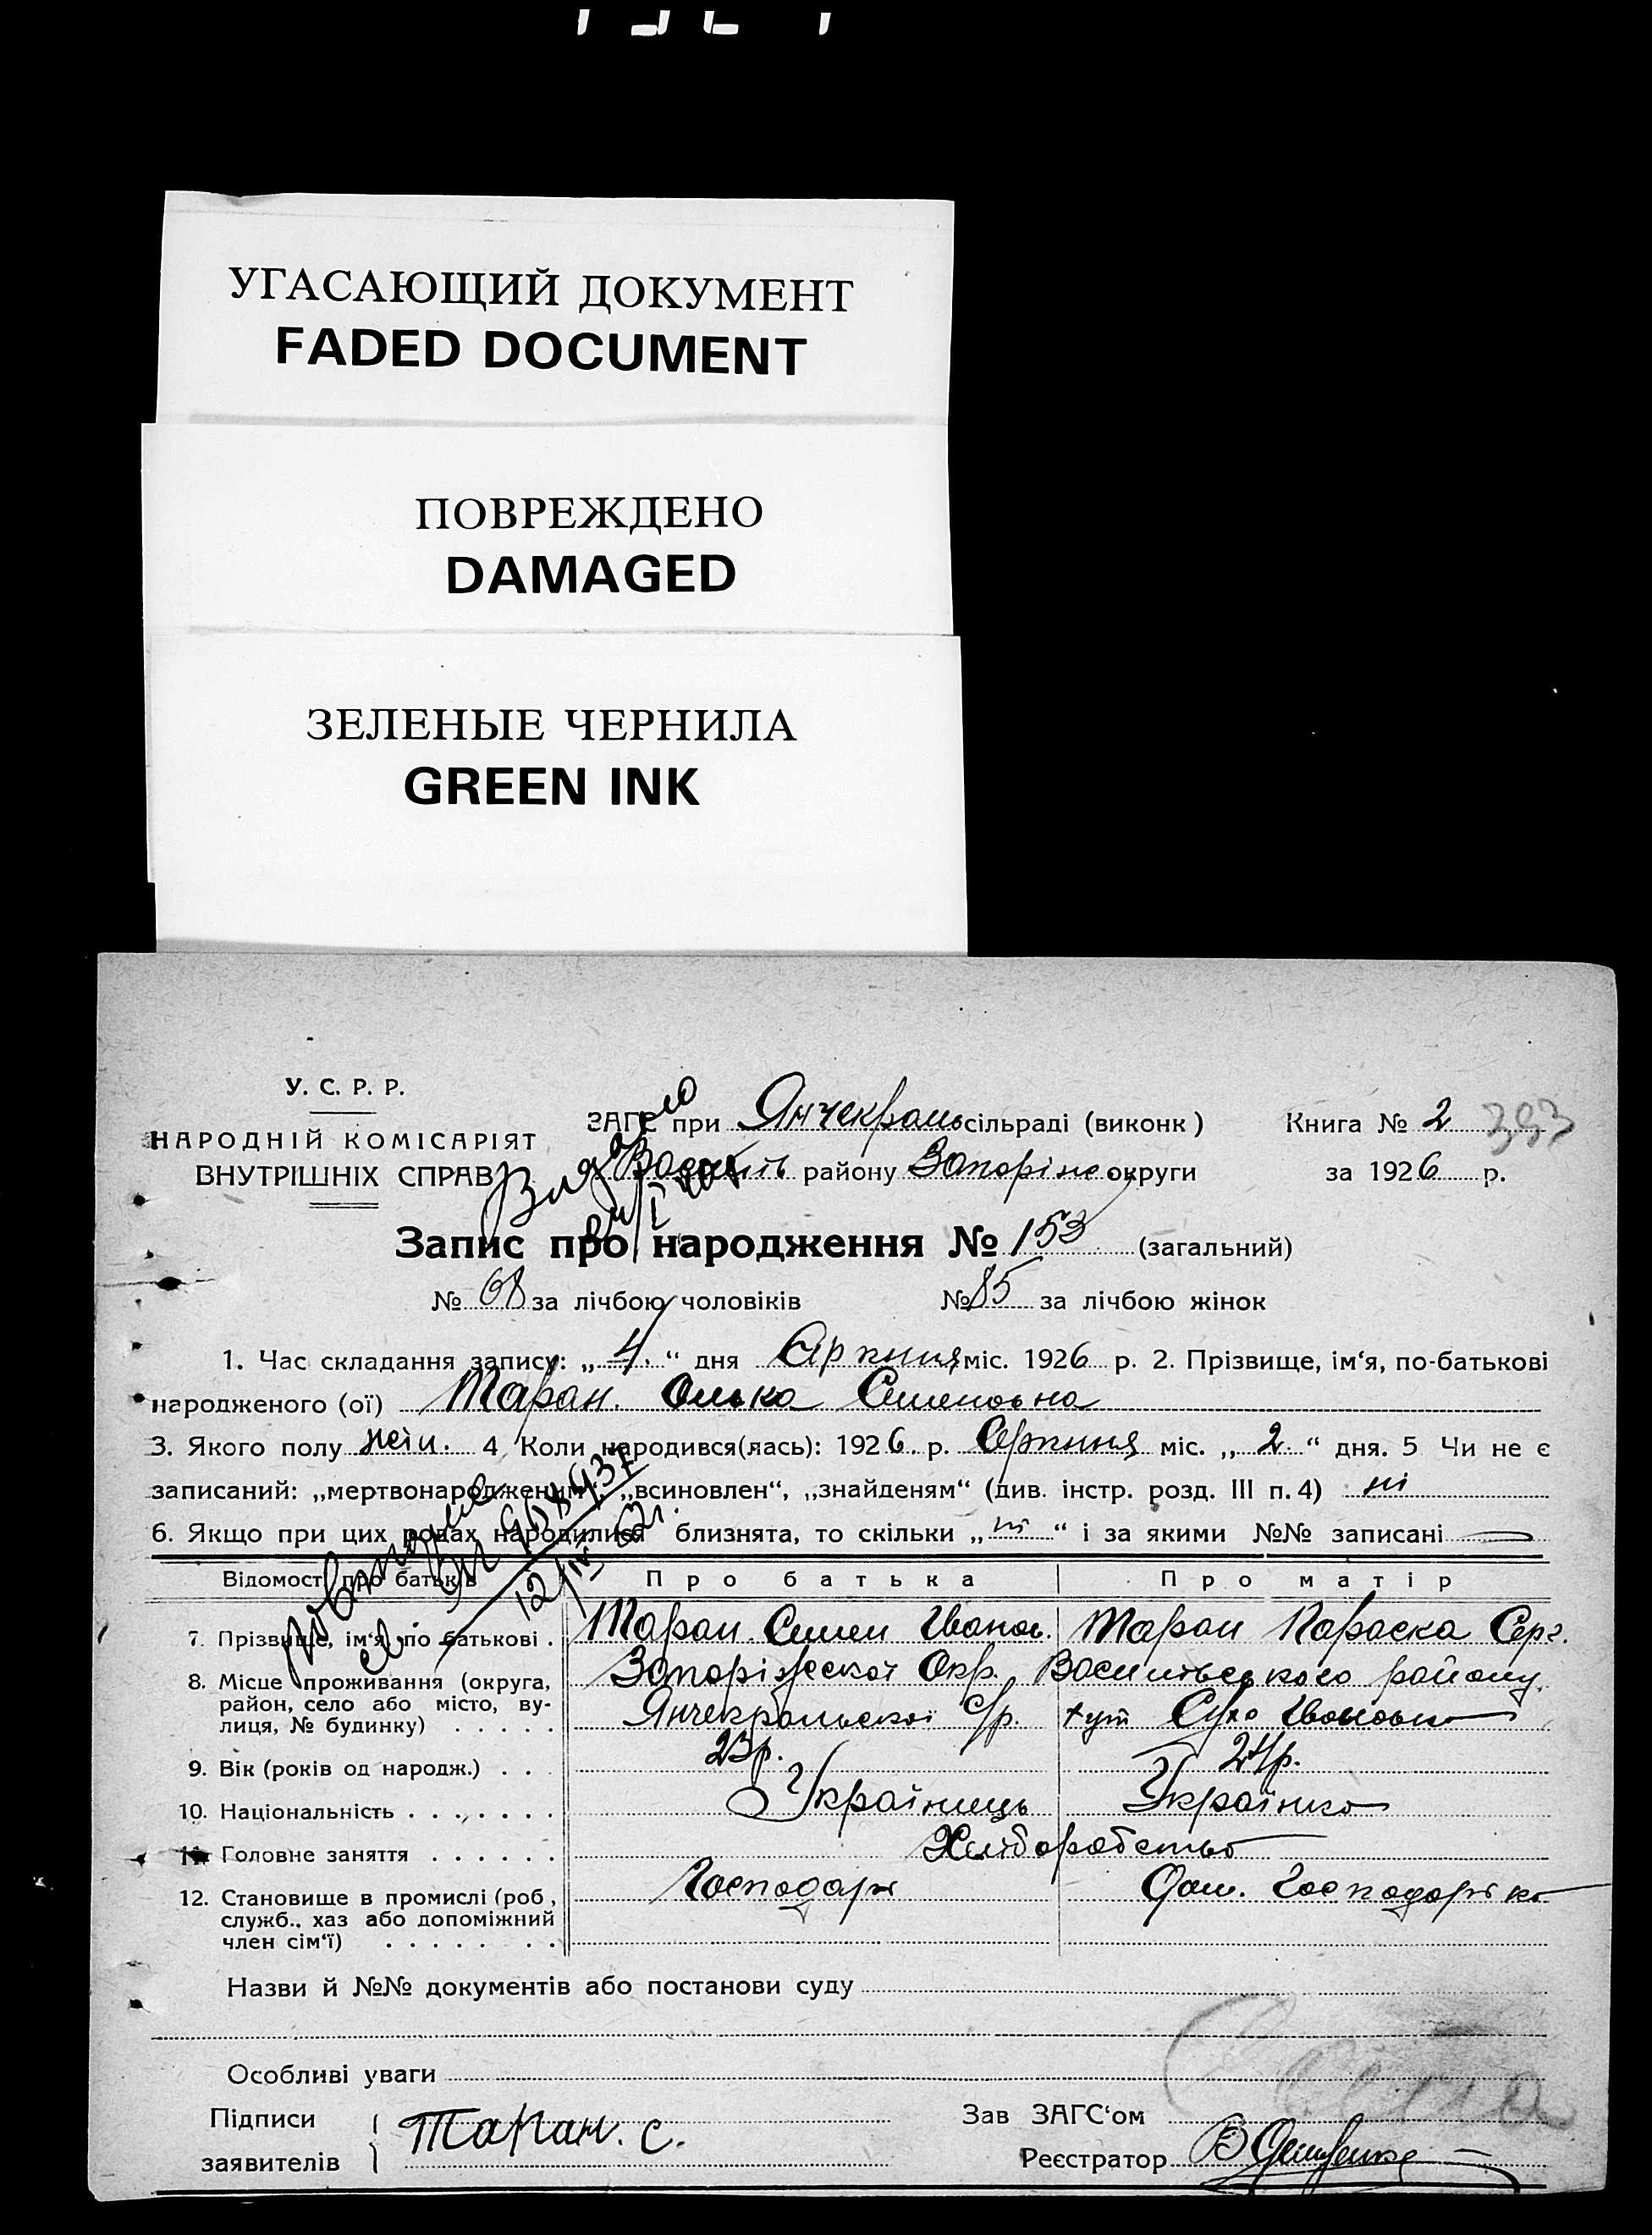 УГАСАЮЩИЙ ДОКУМЕНТ
FADED DOCUMENT
ПОВРЕЖДЕНО
DAMAGED
ЗЕЛЕНЫЕ ЧЕРНИЛА
GREEN INK
У. С. Р. Р.
НАРОДНІЙ КОМІСАРІЯТ
ВНУТРІШНІХ СПРАВ
ЗАГС при Янчекраль сільраді (виконк) Книга № 2 393
Василь району Запоріж округи за 1926 р.
Видано
Запис про народження № 153 (загальний)
№ 68 за лічбою чоловіків № 85 за лічбою жінок
1. Час складання запису: „4." дня Серпня міс. 1926 р. 2. Прізвище, ім'я, по-батькові
народженого (ої) Таран. Олька Семеновна
3. Якого полу жін. 4 Коли народився(лась): 1926. р. Серпня міс. „ 2 " дня. 5 Чи не є
записаний: „мертвонародженим", „всиновлен", „знайденям" (див. інстр. розд. III п. 4) ні
6. Якщо при цих родах народилися близнята, то скільки „ ні " і за якими №№ записані —
Повторне
св.
908437
12/IV
Відомості про батьків Про батька Про матір
7. Прізвище, ім'я, по батькові . Таран Семен Іванов. Таран Параска Серг.
8. Місце проживання (округа, Запоріжської Окр. Василівського району
район, село або місто, ву- Янчекральської с/р. хут Сухо Івановка
лиця, № будинку) . . . . .
9. Вік (років од народж.) . . . 23 р. 24 р.
10. Національність . . . . . . . Українець Українка
11. Головне заняття . . . . . . Хліборобство
12. Становище в промислі (роб, Господарь Дом. Господарька
служб., хаз або допоміжний
член сім'ї) . . . . . . .
Назви й №№ документів або постанови суду
Особливі уваги
Підписи Таран. С. Зав ЗАГС'ом
заявителів Реєстратор